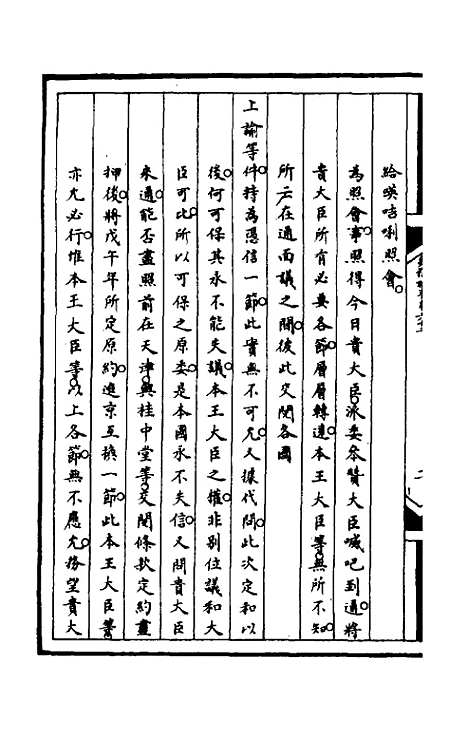 給暎咭唎照會
為照會事照得今日貴大臣派委叅贊大臣喊吧到通將
貴大臣所有必要各節層層轉達本王大臣等無所不知
所云在通面議之間彼此交閱各國
上諭等件持為憑信一節此實無不可允又據代問此次定和以
後何可保其永不能失議本王大臣之權非別位議和大
臣可比所以可保之原委是本國永不失信又問貴大臣
來通能否盡照前在天津與桂中堂等交閱條款定約畫
押後將戊午年所定原約進京互換一節此本王大臣等
亦允必行惟本王大臣等以上各節無不應允務望貴大